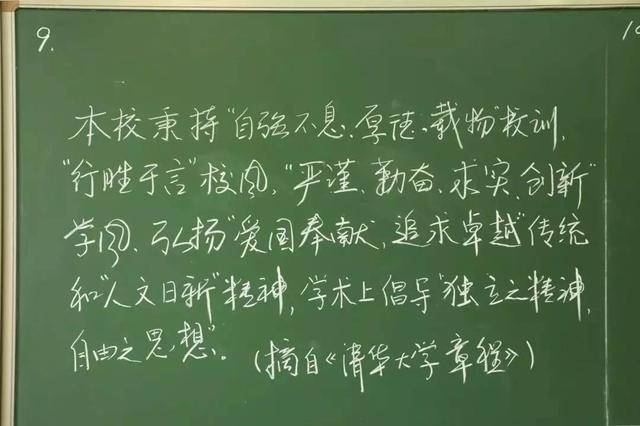 9.
本校秉持"自强不息、厚德、载物"校训,
"行胜于言"校风,"严谨、勤奋、求实、创新"
学风、弘扬"爱国奉献,追求卓越"传统
和"人文日新"精神,学术上倡导"独立之精神,
自由之思想"。(摘自《清华大学章程》)